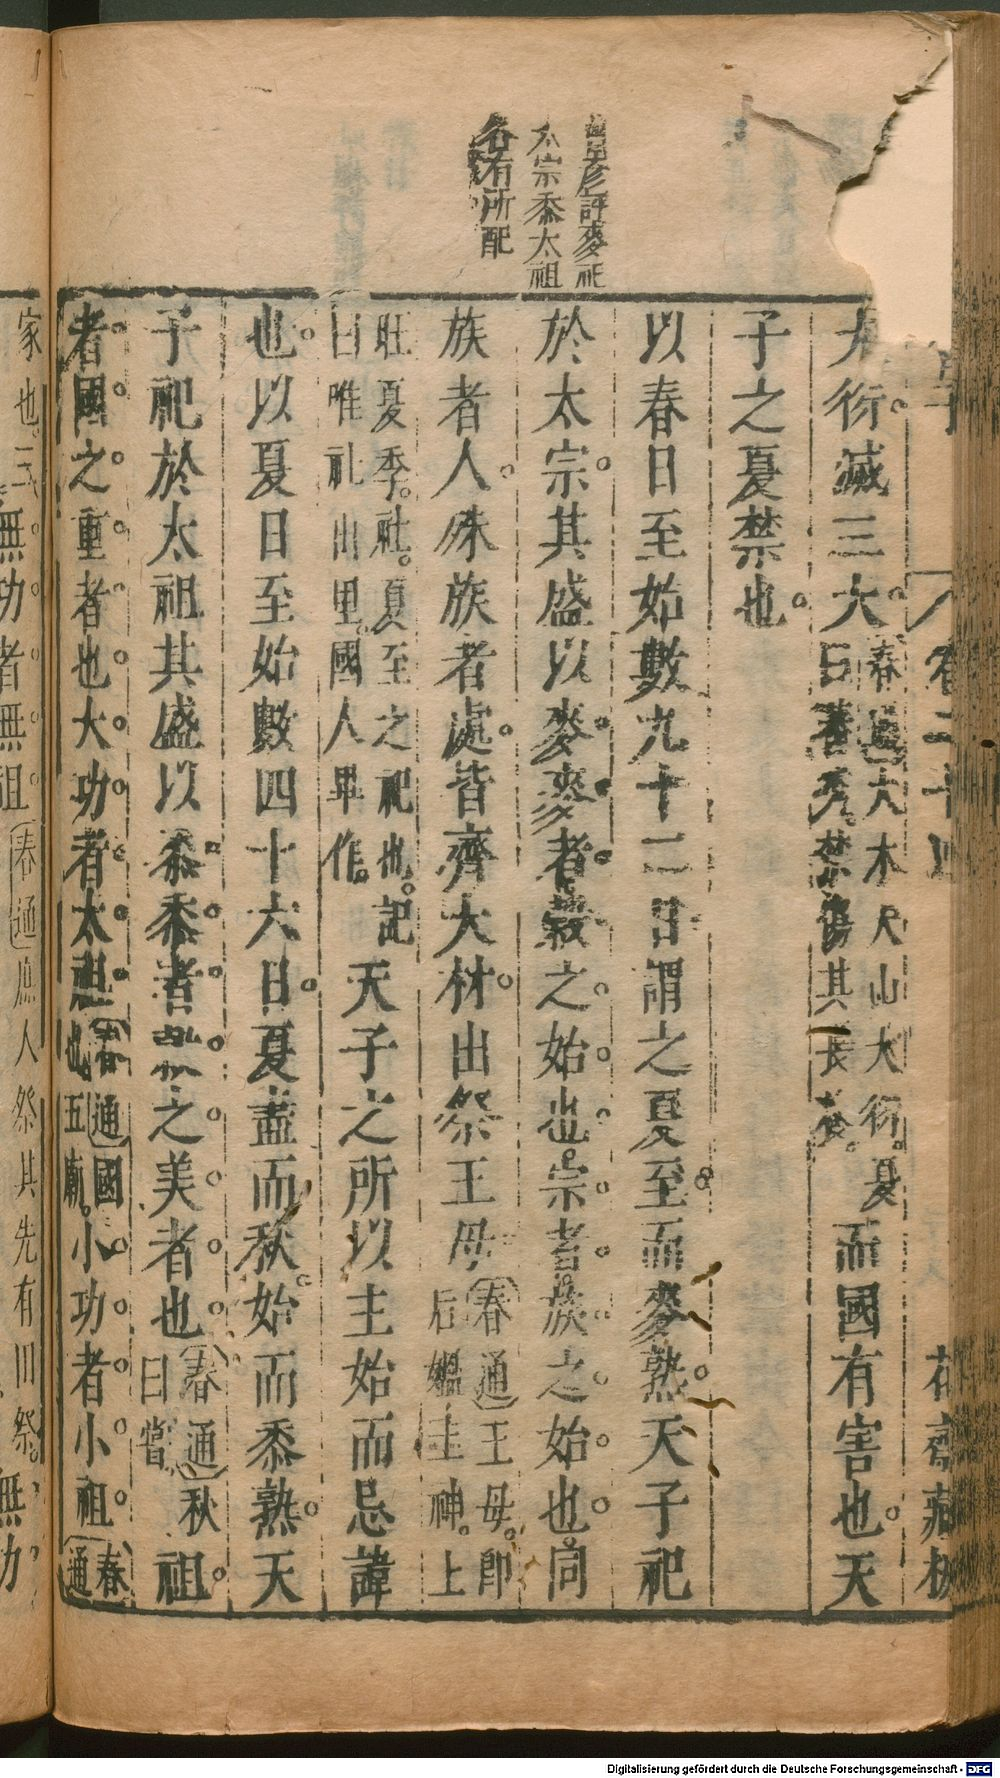 趙用彦評麥祀
太宗黍太祖
各有所配
管子 卷二十四 花齋藏板
大衍滅三大春通大木大山大衍夏日蕃秀禁傷其長養而國有害也天
子之夏禁也
以春日至始數九十二日謂之夏至而麥熟天子祀
於太宗其盛以麥麥者穀之始也宗者族之始也同
族者人殊族者處皆齊大材出祭王母春通王母即后媼主神上
旺夏季社夏至之祀也記曰唯社出里國人畢作天子之所以主始而忌諱
也以夏日至始數四十六日夏盡而秋始而黍熟天
子祀於太祖其盛以黍黍者穀之美者也春通秋曰嘗祖
者國之重者也大功者太祖春通國也五廟小功者小祖春通
家也三 無功者無祖春通庶人祭其先有田祭無功